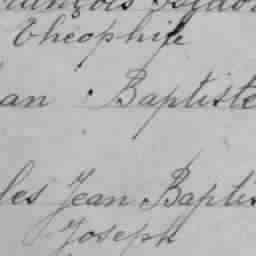 François Isidor
Théophile
an Baptiste
les Jean Baptis
Joseph